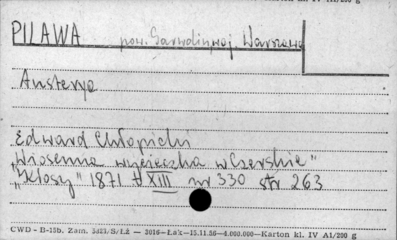 PILAWA pow. Garwolin woj. Warszawa
Austerya
Edward Chłopicki
"Wiosenna wycieczka w Czerskie"
"Kłosy" 1871 t XIII nr 330 str 263
CWD - B-15b. Zam. 5523/S/ŁŻ — 3016—Łak—15.11.56—4.000.000—Karton kl. IV A1/200 g